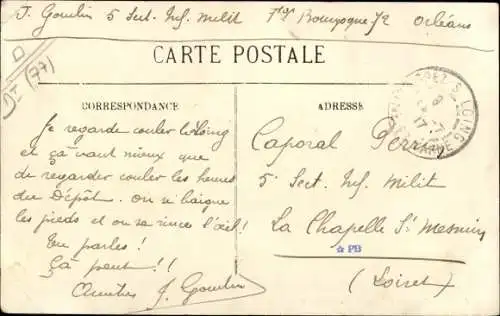 J. Goudin 5 Sect. Inf. Milit 7 rue Bourgogne 72 Orléans
DI
D
(77)
CARTE POSTALE
CORRESPONDANCE
ADRESSE
Je regarde couler le Loing
et ça vaut mieux que
de regarder couler les heures
du Dépôt. On se baigne
les pieds et on se rince l'œil!
Tu parles!
Ça peut!!
J. Goudin
Caporal
5e Sect. Inf. Milit
La Chapelle St Mesmin
(Loiret)
S. LOING
☆ PB